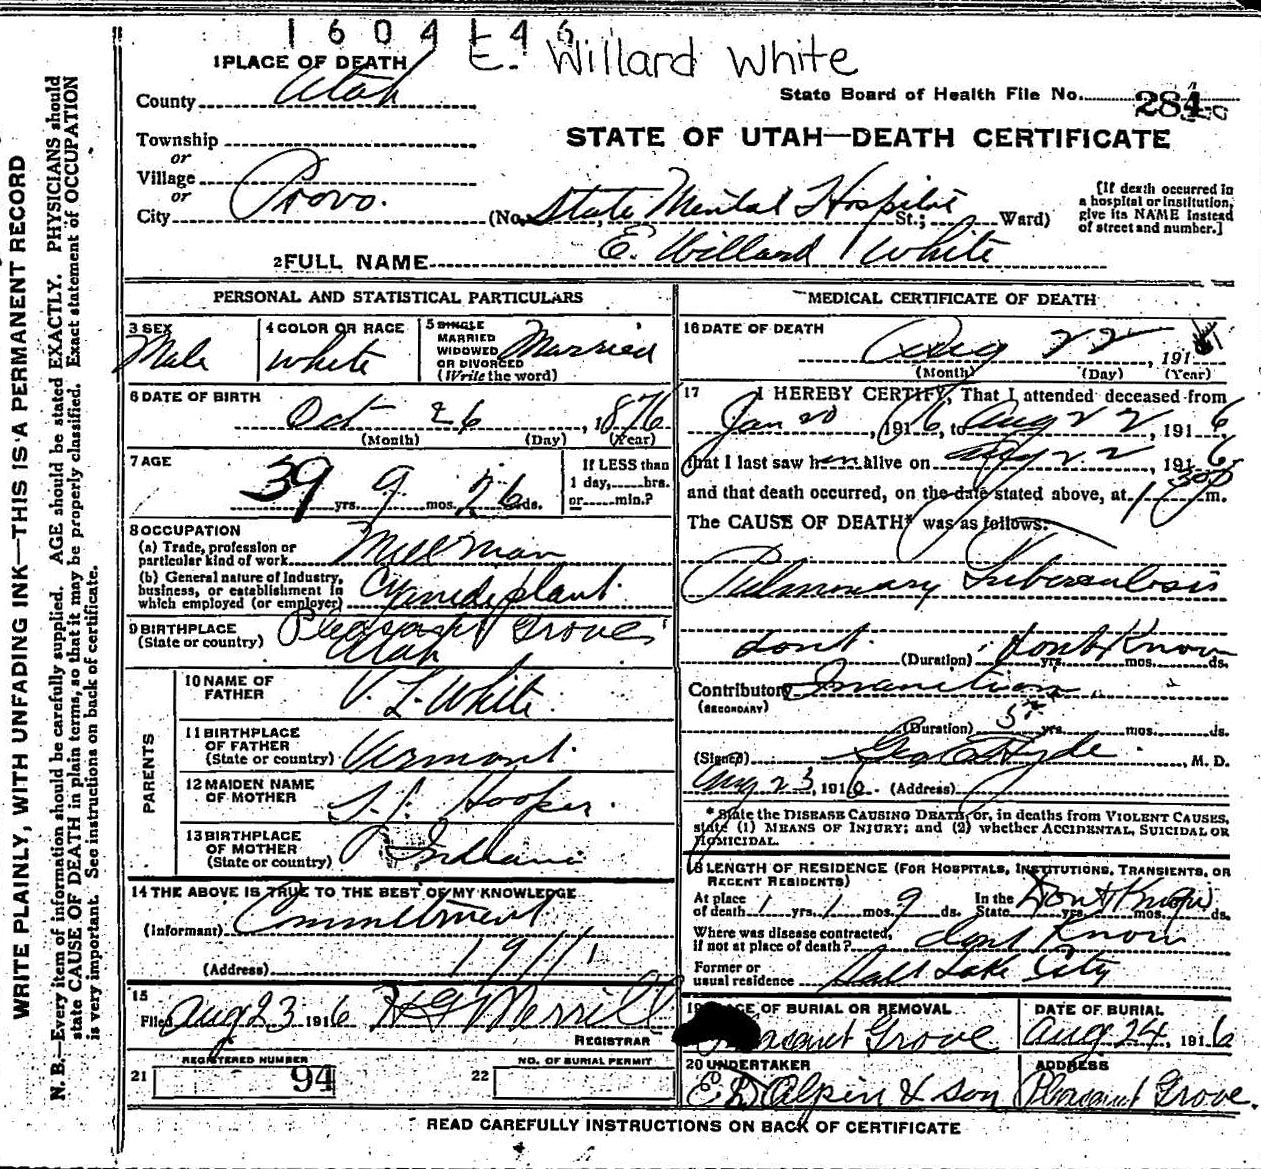 1604146
E. Willard White
1 PLACE OF DEATH
County Utah
State Board of Health File No. 284
Township
or
Village
or
City Provo.
STATE OF UTAH—DEATH CERTIFICATE
(No. State Mental Hospital St.; Ward)
[If death occurred in
a hospital or institution,
give its NAME instead
of street and number.]
2 FULL NAME E. Willard White
PERSONAL AND STATISTICAL PARTICULARS
3 SEX
Male
4 COLOR OR RACE
White
5 SINGLE
MARRIED
WIDOWED
OR DIVORCED
(Write the word)
Married
6 DATE OF BIRTH
Oct 26, 1876
(Month) (Day) (Year)
7 AGE
39 yrs. 9 mos. 26 ds.
If LESS than
1 day, hrs.
or min.?
8 OCCUPATION
(a) Trade, profession or
particular kind of work Millman
(b) General nature of Industry,
business, or establishment in
which employed (or employer) Cyanide plant.
9 BIRTHPLACE
(State or country) Pleasant Grove
Utah
PARENTS
10 NAME OF
FATHER
L. White.
11 BIRTHPLACE
OF FATHER
(State or country) Vermont.
12 MAIDEN NAME
OF MOTHER
Hooper.
13 BIRTHPLACE
OF MOTHER
(State or country)
Indiana
14 THE ABOVE IS TRUE TO THE BEST OF MY KNOWLEDGE
(Informant) Commitment
(Address) 1911
15
Filed Aug 23 1916 Merrill
REGISTRAR
21 REGISTERED NUMBER
94
22 NO. OF BURIAL PERMIT
MEDICAL CERTIFICATE OF DEATH
16 DATE OF DEATH
Aug 22, 191
(Month) (Day) (Year)
17 I HEREBY CERTIFY, That I attended deceased from
Jan 20, 1916, to Aug 22, 1916
that I last saw him alive on Aug 22, 1916
and that death occurred, on the date stated above, at 1 30 P m.
The CAUSE OF DEATH* was as follows:
Pulmonary Tuberculosis
dont. (Duration) dont Know yrs. mos. ds.
Contributory Inanition
(SECONDARY)
(Duration) 5 yrs. mos. ds.
(Signed) Geo E Hyde, M. D.
Aug 23, 1916. (Address)
*State the DISEASE CAUSING DEATH, or, in deaths from VIOLENT CAUSES,
state (1) MEANS OF INJURY; and (2) whether ACCIDENTAL, SUICIDAL OR
HOMICIDAL.
18 LENGTH OF RESIDENCE (FOR HOSPITALS, INSTITUTIONS, TRANSIENTS, OR
RECENT RESIDENTS)
At place
of death 1 yrs. 1 mos. 9 ds. In the
State Dont Know yrs. mos. ds.
Where was disease contracted,
if not at place of death? dont Know
Former or
usual residence Salt Lake City
19 PLACE OF BURIAL OR REMOVAL
Pleasant Grove.
DATE OF BURIAL
Aug 24, 1916
20 UNDERTAKER
E. D. Olpin & Son
ADDRESS
Pleasant Grove.
READ CAREFULLY INSTRUCTIONS ON BACK OF CERTIFICATE
WRITE PLAINLY, WITH UNFADING INK—THIS IS A PERMANENT RECORD
N. B.—Every item of information should be carefully supplied. AGE should be stated EXACTLY. PHYSICIANS should
state CAUSE OF DEATH in plain terms, so that it may be properly classified. Exact statement of OCCUPATION
is very important. See instructions on back of certificate.